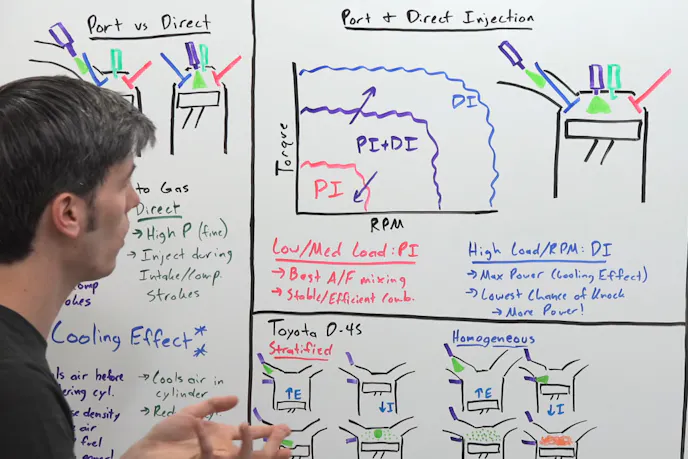 Port vs Direct
to Gas
Direct
→ High P (fine)
→ Inject during
Intake/Comp.
Strokes
Strokes
Cooling Effect**
air before
cyl.
density
air
fuel
→ Cools air in
cylinder
Port & Direct Injection
Torque
DI
PI+DI
PI
RPM
Low/Med Load: PI
→ Best A/F mixing
→ Stable/Efficient Comb.
High Load/RPM: DI
→ Max Power (Cooling Effect)
→ Lowest Chance of Knock
→ More Power!
Toyota D-4S
Stratified
Homogeneous
↑E
↓I
↑E
↓I